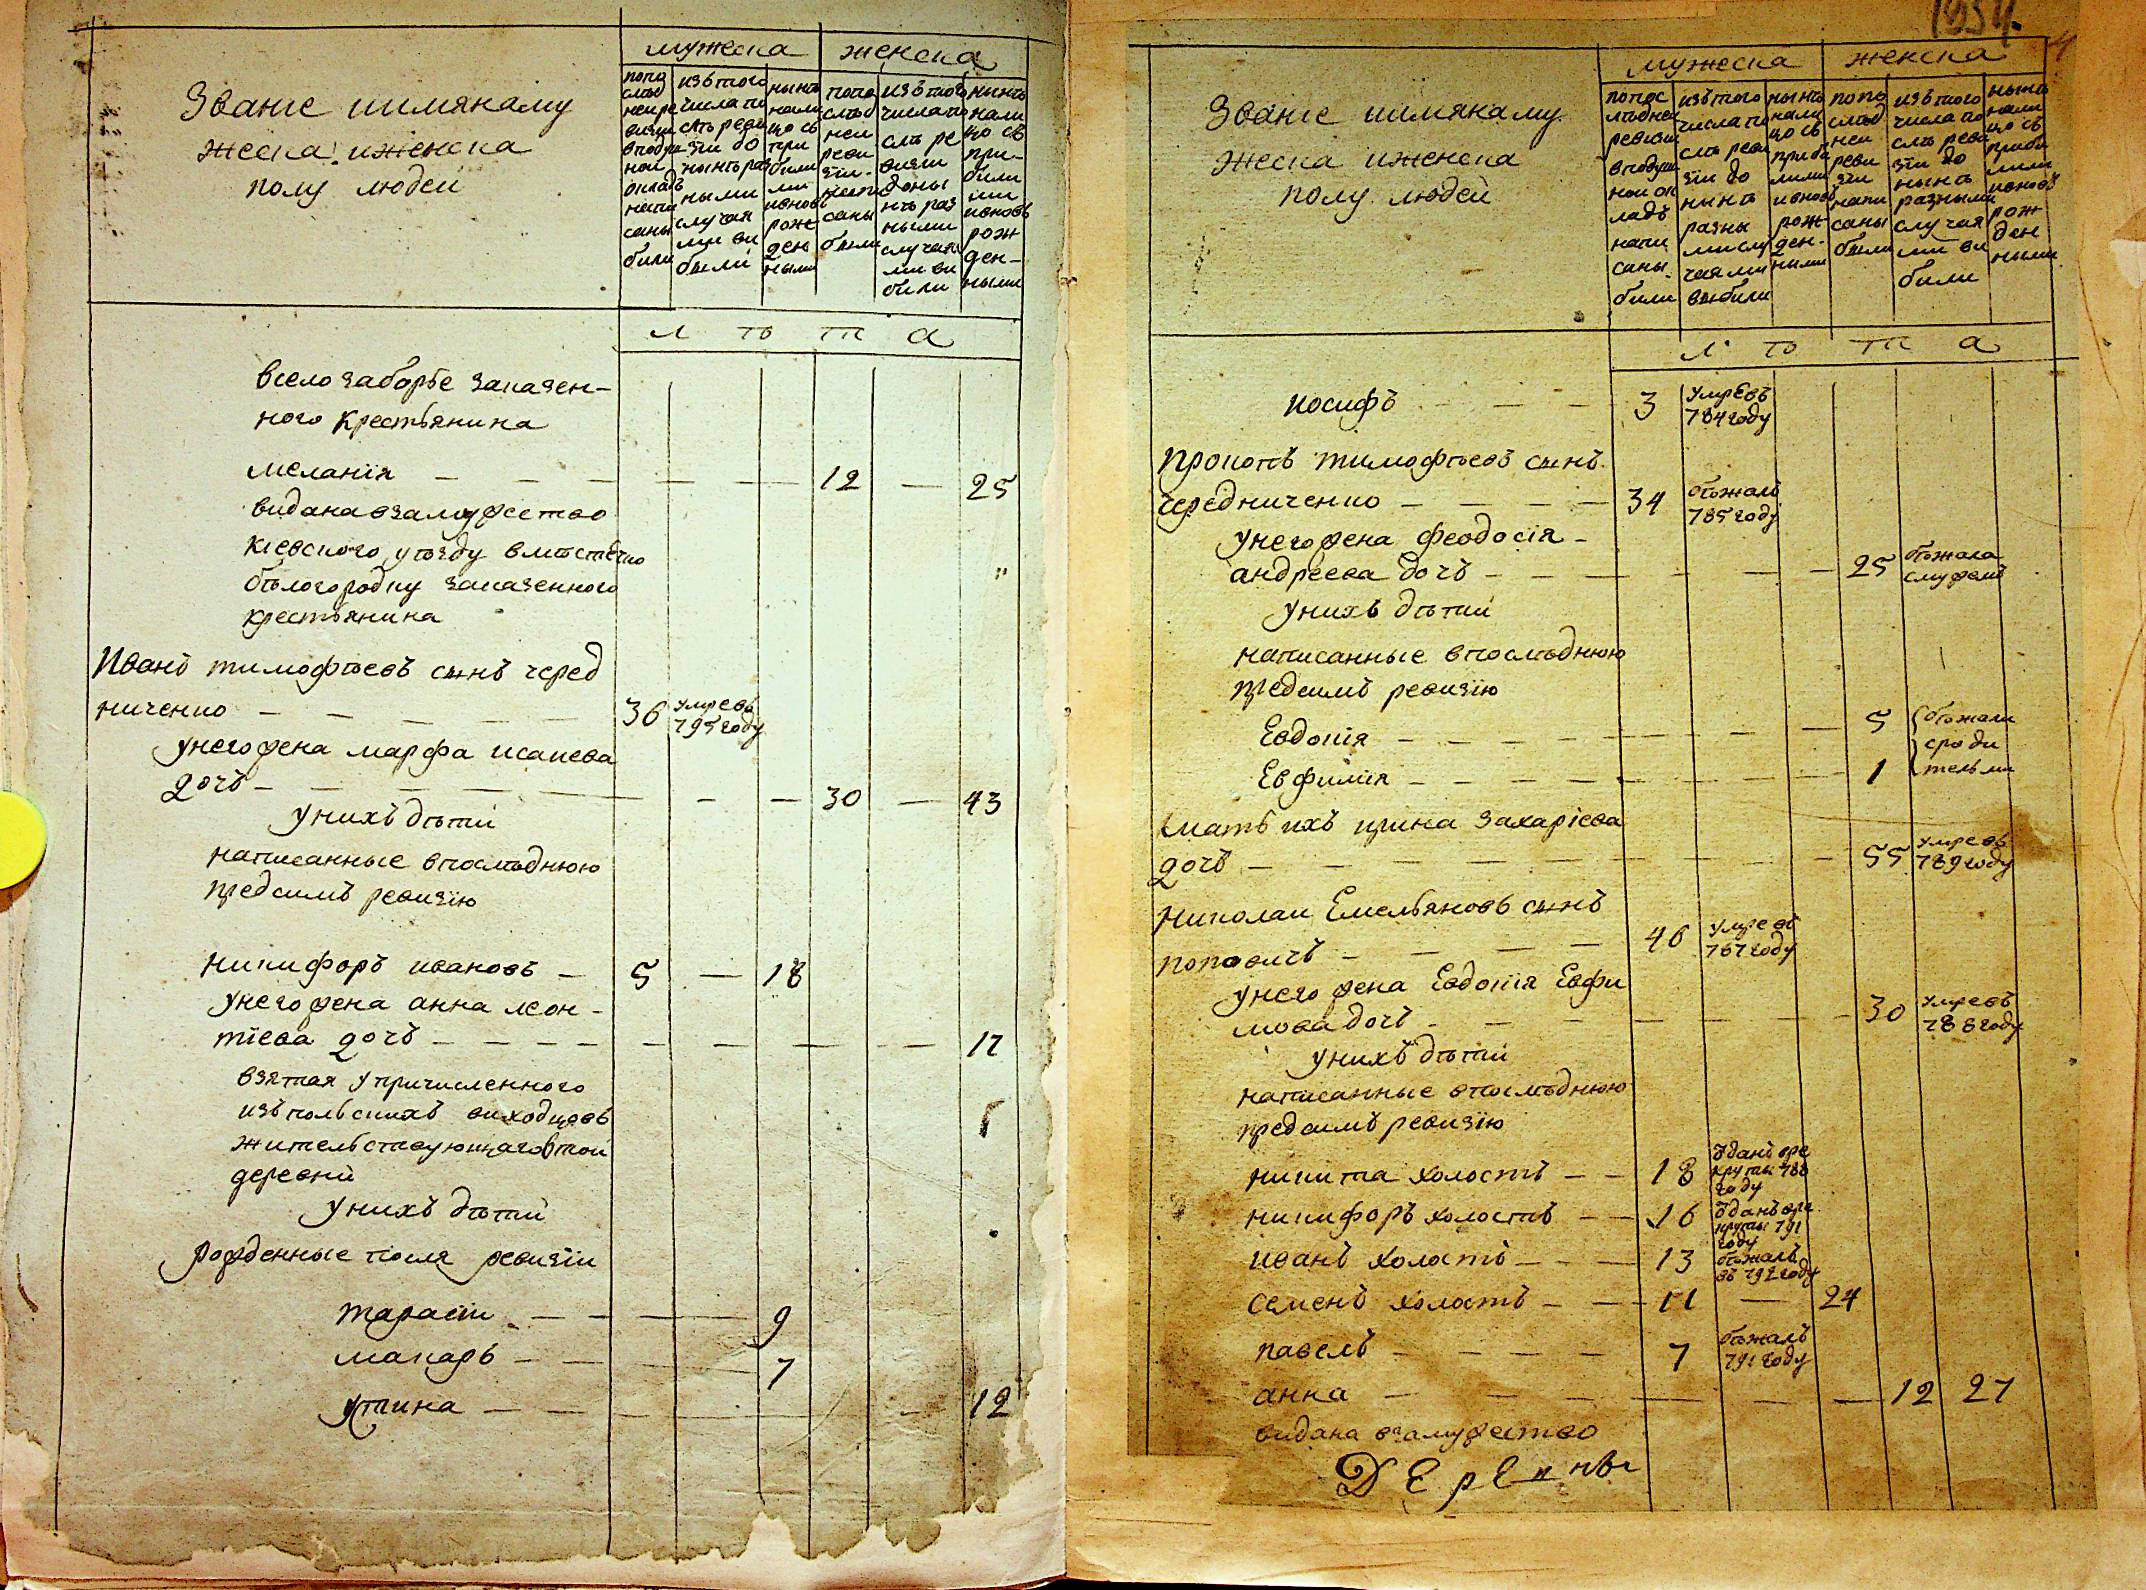 мужеска женска
Званіе иимянаму
жеска иженска
полу людей
попо
слѣд
ней ре
визии
вподуш
ной
окладъ
напи
саны
были
изътого
числа по
слѣ реви
зіи до
нынѣ раз
ными
случая
ми вы
были
нынѣ
нали
цо съ
при
были
ми
ивновъ
рож
ден
ными
попо
слѣд
ней
реви
зіи
напи
саны
были
изътого
числа по
слѣ ре
визіи
доны
нѣ раз
ными
случая
ми вы
были
нынѣ
нали
цо съ
при-
были
ми
ивновъ
рож
ден-
ными
л ѣ т а
всело заборье заказен-
ного крестьянина
меланія — 12 — 25
видана взамужество
кіевского уѣзду вмѣстечко
бѣлогородку заказенного
крестьянина
Иванъ тимофѣевъ сынъ черед
ниченко — 36 умревъ
795 году
унего жена марфа исакиева
дочъ — 30 — 43
унихъ дѣти
написанные впослѣднюю
предсимъ ревизію
никифоръ ивановъ — 5 — 18
унего жена анна леон-
тіева дочъ — 17
взятая упричисленного
изъ польскихъ виходцовъ
жительствующаго втой
деревнй
унихъ дѣтй
рожденные посля ревизіи
тарасій — 9
макаръ — 7
устина — 12
1834.
мужеска женска
Званіе иимянаму
жеска иженска
полу людей
попос
лѣдней
ревизіи
вподуш
ной ок
ладъ
напи
саны
были
изътого
числа по
слѣ реви
зіи до
нынѣ
разны
мислу
чаями
выбыли
нынѣ
нали
цо съ
прибы
лими
ивновъ
рож
ден-
ными
попо
слѣд
ней
реви
зіи
напи
саны
были
изътого
числа по
слѣ реви
зіи до
нынѣ
разными
случая
ми вы
были
нынѣ
нали
цо съ
прибы
лими
ивновъ
рож
ден
ными
л ѣ т а
иосифъ — 3 умревъ
784 году
прокопъ тимофѣевъ сынъ
чередниченко — 34 бѣжалъ
785 году
унего жена феодосія -
андреева дочъ — 25 бѣжала
смужемъ
унихъ дѣтий
написанные впослѣднюю
предсимъ ревизію
Евдокія — 5 бѣжали
сроди
Евфимія — 1 тельми
мать ихъ ирина захаріева
дочъ — 55 умревъ
789 году
николаи Емельяновъ сынъ
поповичъ — 46 умревъ
787 году
унего жена Евдокія Евфи
мова дочъ — 30 умревъ
788 году
унихъ дѣтий
написанные впослѣднюю
предсимъ ревизію
никита холостъ — 18 ѿданъ вре
круты 788
году
никифоръ холостъ — 16 ѿданъ вре
круты 791
году
иванъ холостъ — 13 бѣжалъ
въ 792 году
семенъ холостъ — 11 — 24
павелъ — 7 бѣжалъ
791 году
анна — 12 27
видана взамужество